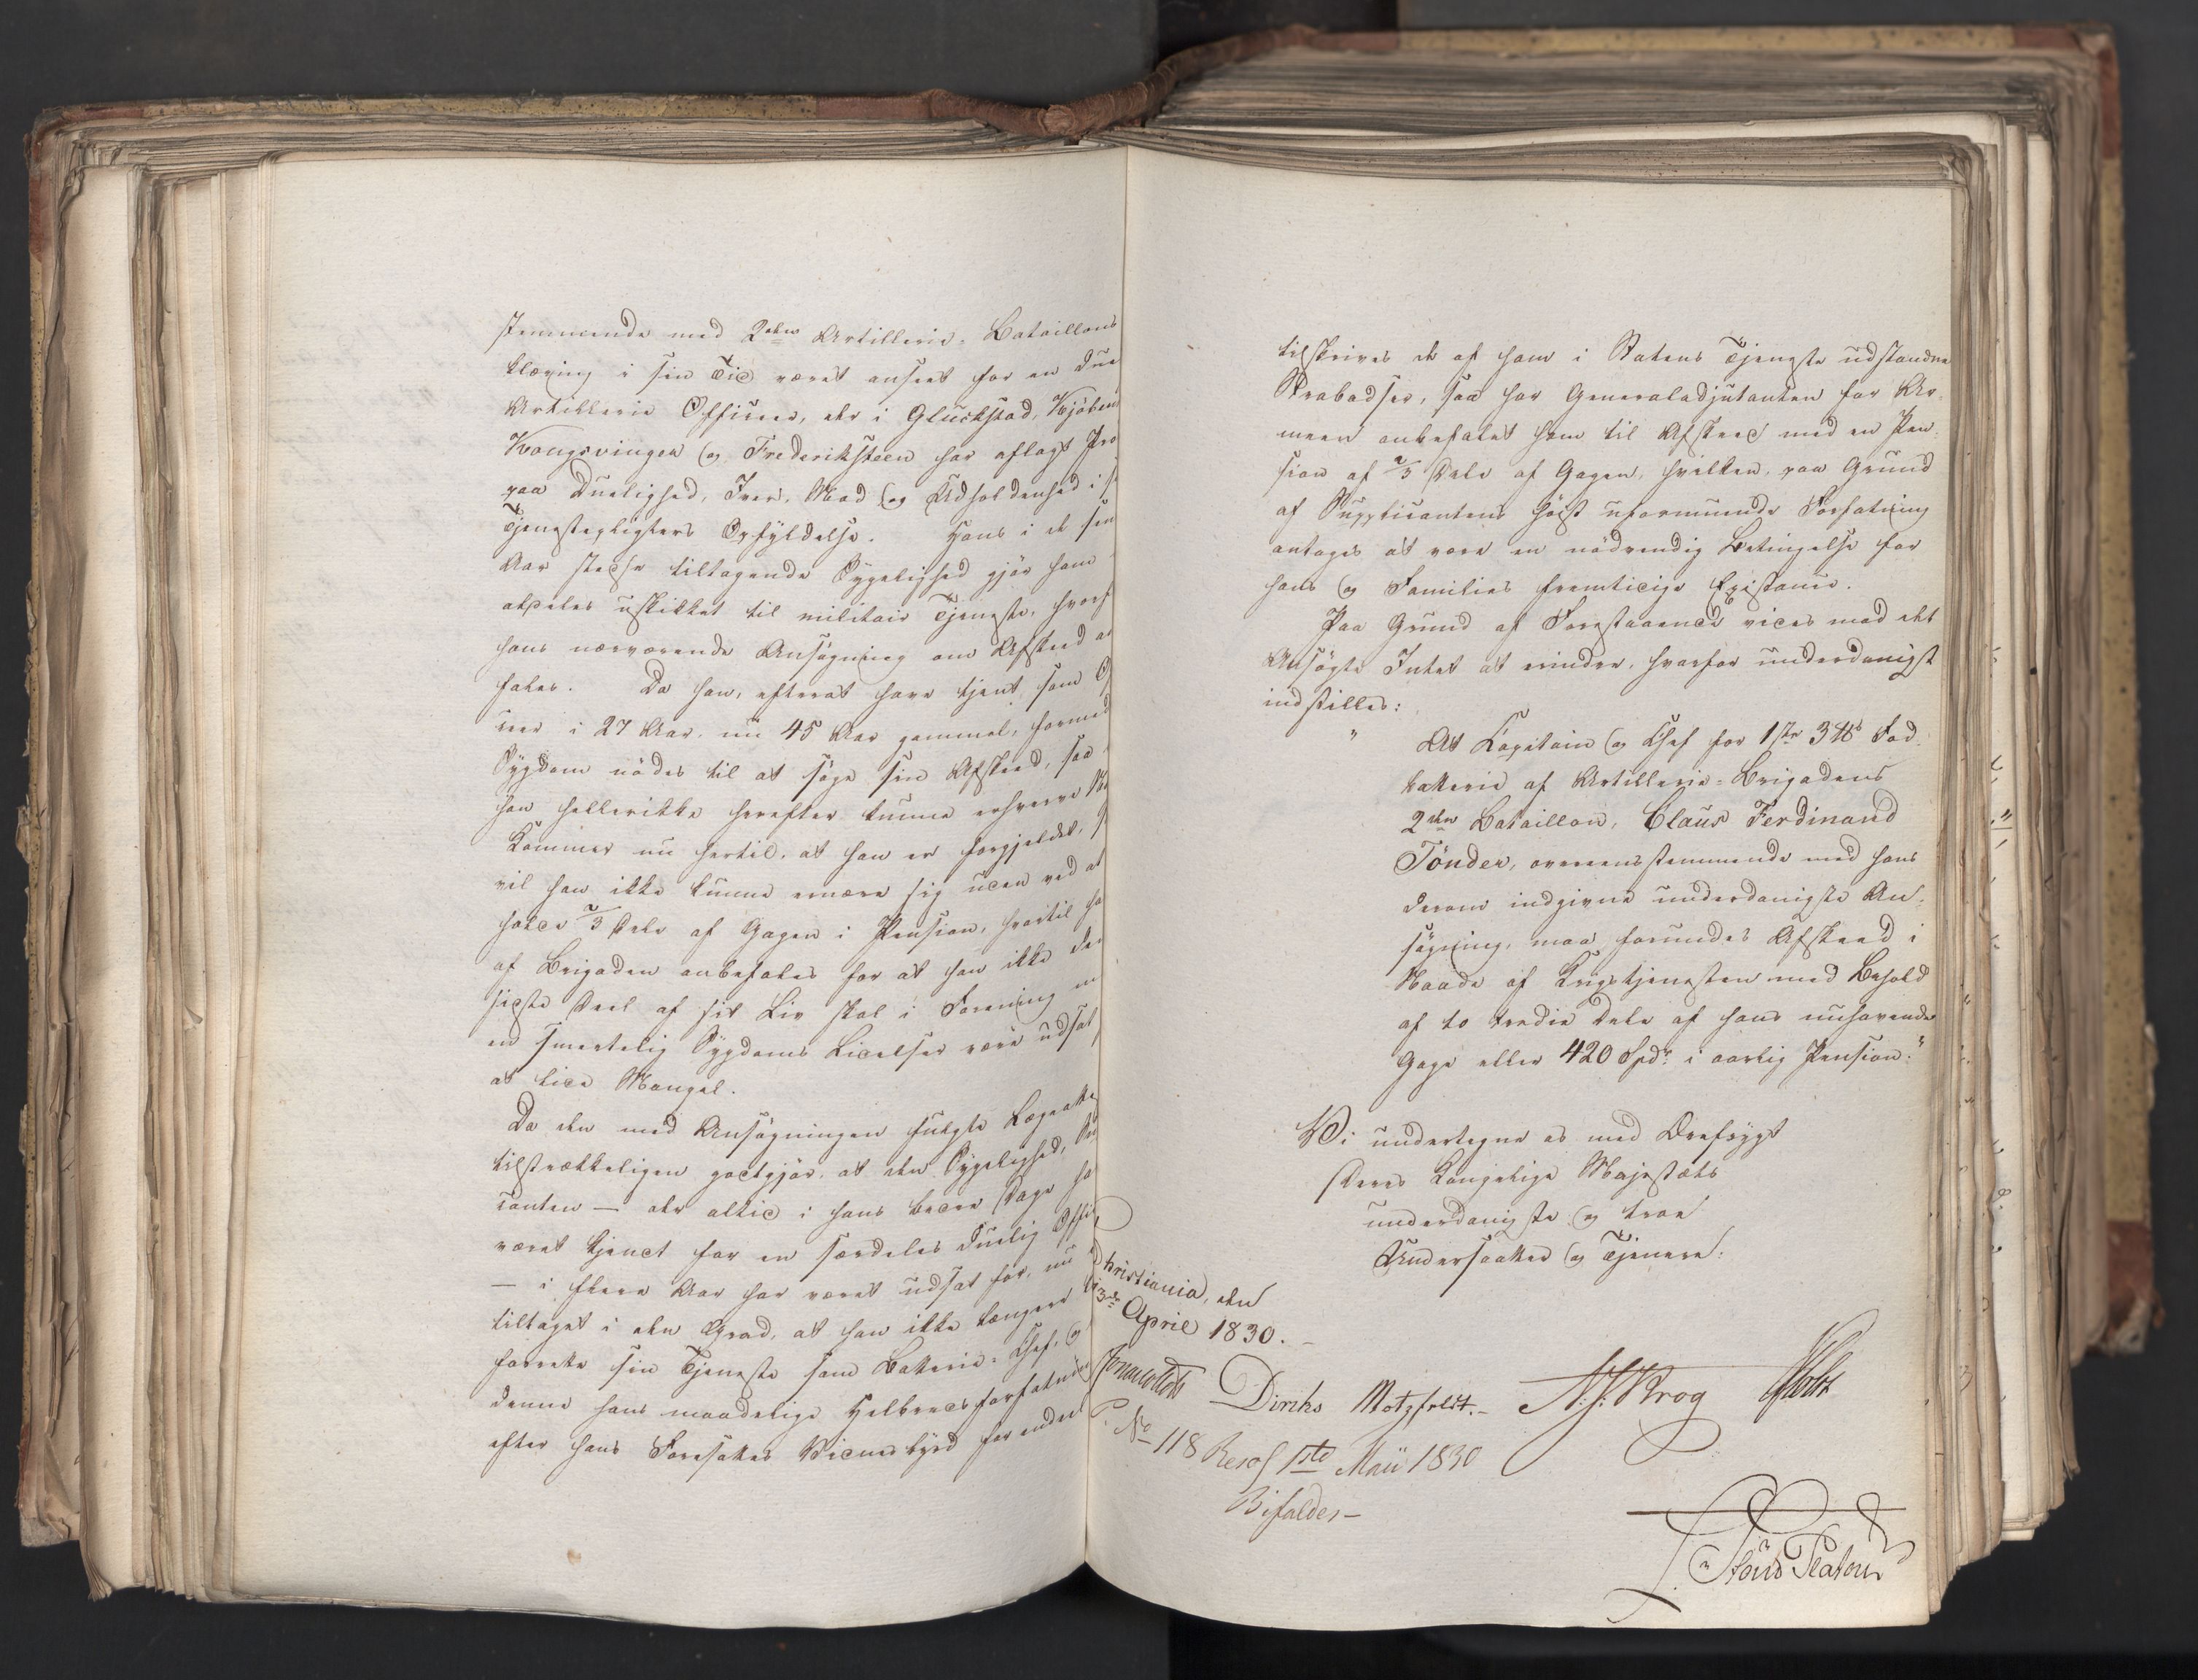 stemmende med 2den Artillerie-Bataillons
klæring i sin Tid været anseet for en due
Artillerie Officeer, der i Gluckstad, Kjöben
Kongsvinger og Frederiksteen har aflagt Prø
paa Duelighed, Iver, Mod og Udholdenhed i s
Tjenestepligters Opfyldelse. Hans i de sen
Aar stedse tiltagende Sygelighed gjör ham
aldeles uskikket til militair Tjeneste, hvorf
hans nærværende Ansögning om Afskeed a
fales. Da han, efterat have tjent som Of
ceer i 27 Aar, nu 45 Aar gammel, formed
Sygdom nödes til at söge sin Afskeed, saa
han hellerikke herefter kunne erhverve
Kommer nu hertil, at han er forgjeldet,
vil han ikke kunne ernære sig uden ved at
holde 2/3 Dele af Gagen i Pension, hvortil ha
af Brigaden anbefales for at han ikke den
sidste Deel af sit Liv skal i Forening m
en smertelig Sygdoms Lidelser være udsat
at lide Mangel.
Da den med Ansögningen fulgte Lægeatte
tilstrækkeligen godtgjör, at den Sygelighed, Su
canten — der altid i hans bedre Dage ha
været kjendt for en særdeles duelig Offi
— i flere Aar har været udsat for, nu
tiltaget i den Grad, at han ikke længere
forrette sin Tjeneste som Batterie-Chef, og
denne hans maadelige Helbredsforfatni
efter hans Foresattes Vidnesbyrd for enden
tilskrives de af ham i Statens Tjeneste udstandne
Strabadser, saa har Generaladjutanten for Ar-
meen anbefalet ham til Afskeed med en Pen-
sion af 2/3 Dele af Gagen, hvilken, paa Grund
af Supplicantens höist uformuende Forfatning
antages at være en nödvendig Betingelse for
hans og Families fremtidige Existance.
Paa Grund af Forestaaende vides mod det
Ansögte Intet at erindre, hvorfor underdanigst
indstilles:
" At Kapitain og Chef for 1ste 3 ℔s Fod-
batterie af Artillerie-Brigadens
2den Bataillon, Claus Ferdinand
Tönder, overeensstemmende med hans
derom indgivne underdanigste An-
sögning, maa forundes Afskeed i
Naade af Krigstjenesten med Behold
af to tredie Dele af hans nuhavende
Gage eller 420 Spdr i aarlig Pension."
Vi undertegne os med Dyefrygt
Deres Kongelige Majestæts
underdanigste og troe
Undersaatter og Tjenere:
Christiania, den
13de April 1830.
Diriks Motzfeldt.- N. J. Krog Holst
P. No 118 Resol 1ste Maii 1830
Bifaldes—
Stoud Platou